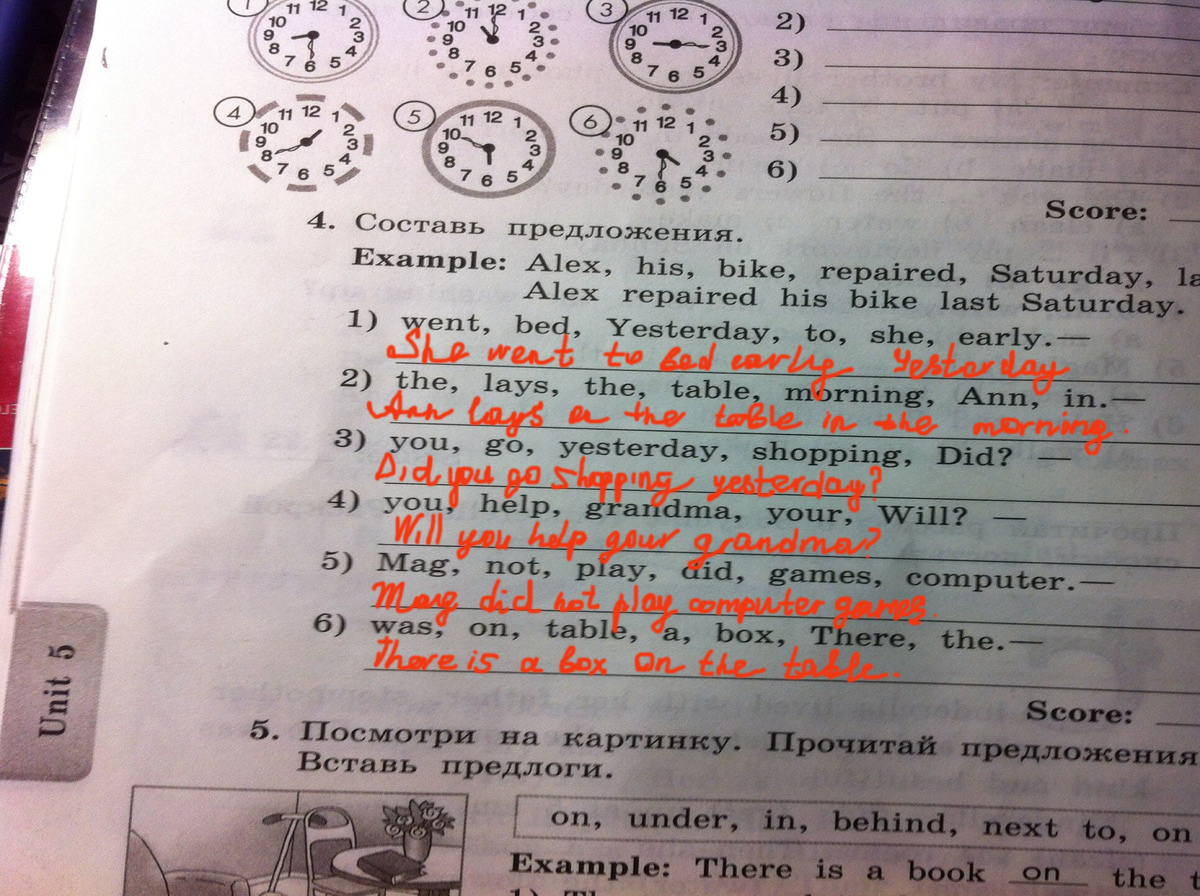 1
11 12 1
10 2
9 3
8 4
7 6 5
2
11 12 1
10 2
9 3
8 4
7 6 5
3
11 12 1
10 2
9 3
8 4
7 6 5
2)
3)
4)
5)
6)
4
11 12 1
10 2
9 3
8 4
7 6 5
5
11 12 1
10 2
9 3
8 4
7 6 5
6
11 12 1
10 2
9 3
8 4
7 6 5
Score:
4. Составь предложения.
Example: Alex, his, bike, repaired, Saturday, la
Alex repaired his bike last Saturday.
1) went, bed, Yesterday, to, she, early.—
She went to bed early yesterday
2) the, lays, the, table, morning, Ann, in.—
Ann lays a the table in the morning.
3) you, go, yesterday, shopping, Did? —
Did you go shopping yesterday?
4) you, help, grandma, your, Will? —
Will you help your grandma?
5) Mag, not, play, did, games, computer.—
Mag did not play computer games.
6) was, on, table, a, box, There, the.—
There is a box on the table.
Score:
Unit 5
5. Посмотри на картинку. Прочитай предложения
Вставь предлоги.
on, under, in, behind, next to, on
Example: There is a book on the